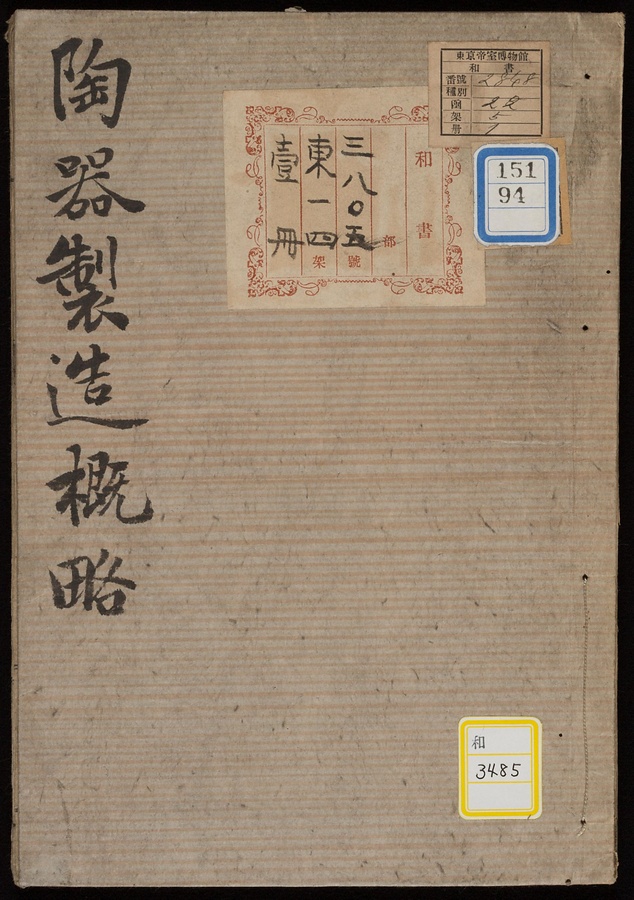 陶器製造概略
東京帝室博物館
和書
番號 2848
種別
函 22
架 5
册 1
和書
部
三八〇五號
東一四架
壹冊
151
94
和
3485